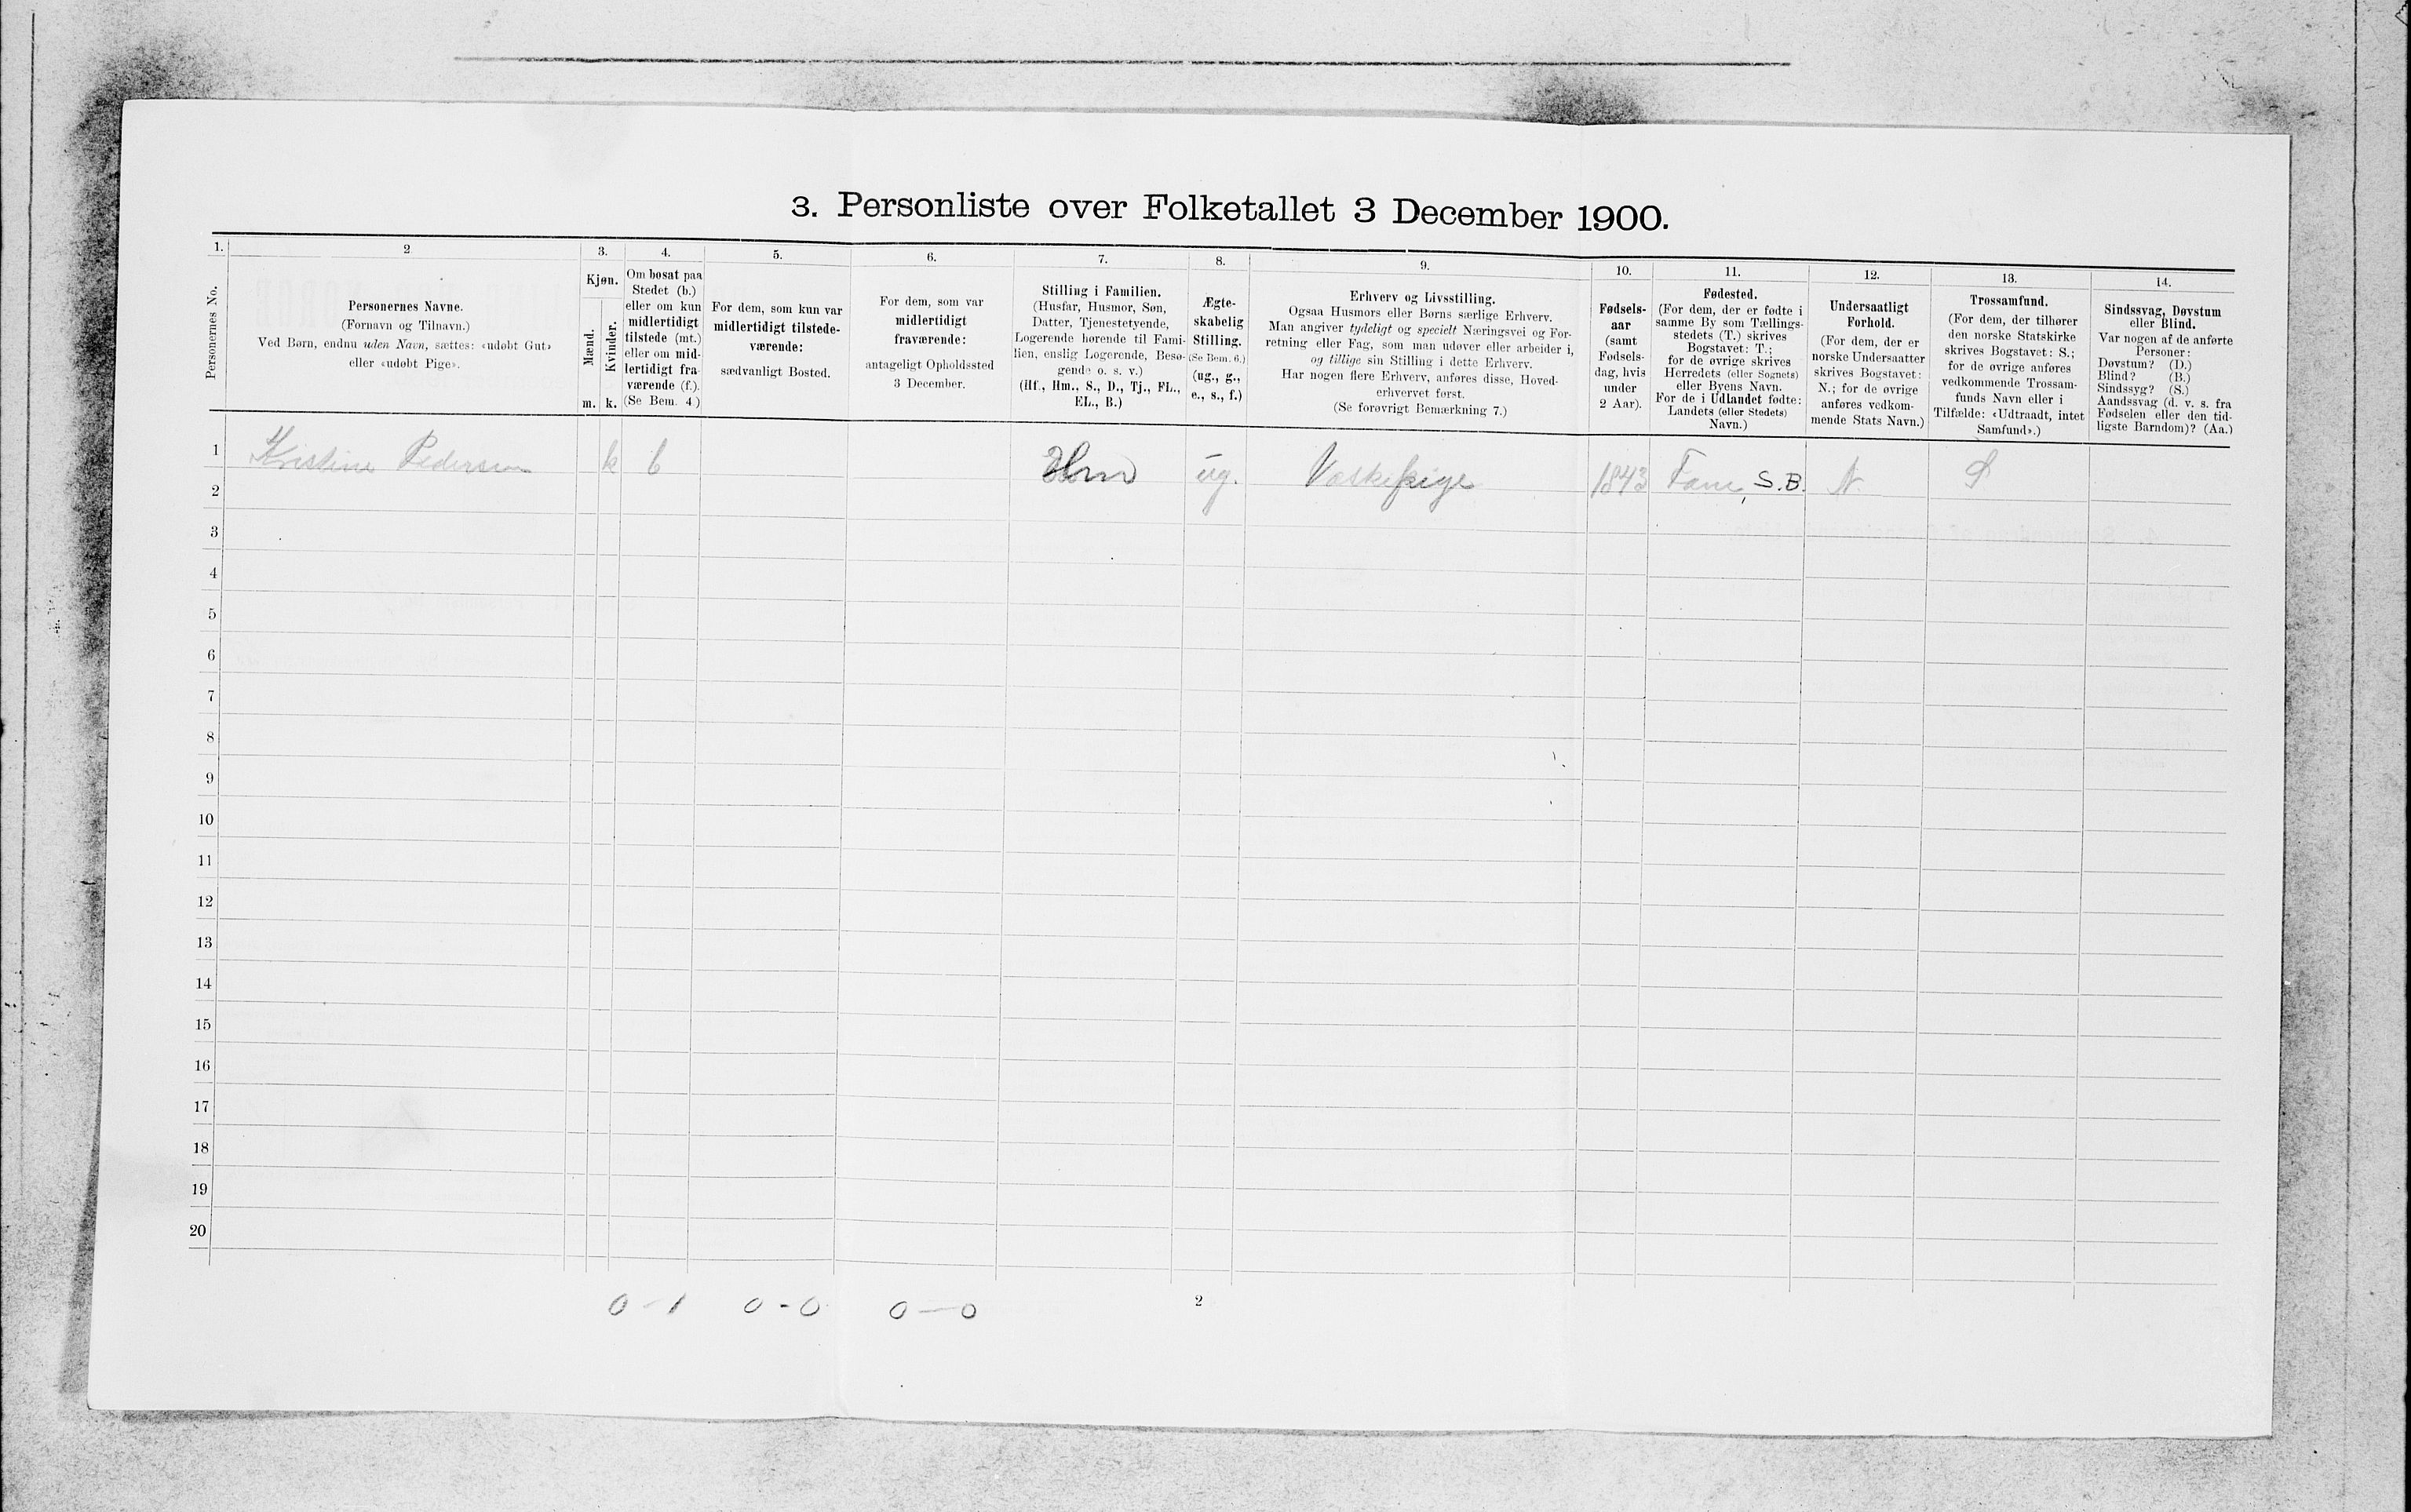 3. Personliste over Folketallet 3 December 1900.
1. 2 3. 4. 5. 6. 7. 8. 9. 10. 11. 12. 13. 14.
Personernes No.
Personernes Navne.
(Fornavn og Tilnavn.)
Ved Børn, endnu uden Navn, sættes: «udøbt Gut»
eller «udøbt Pige».
Kjøn.
Mænd.
Kvinder.
m. k.
Om bosat paa
Stedet (b.)
eller om kun
midlertidigt
tilstede (mt.)
eller om mid-
lertidigt fra-
værende (f.).
(Se Bem. 4.)
For dem, som kun var
midlertidigt tilstede-
værende:
sædvanligt Bosted.
For dem, som var
midlertidigt
fraværende:
antageligt Opholdssted
3 December.
Stilling i Familien.
(Husfar, Husmor, Søn,
Datter, Tjenestetyende,
Logerende hørende til Fami-
lien, enslig Logerende, Besø-
gende o. s. v.)
(Hf., Hm., S., D., Tj., FL.,
EL., B.)
Ægte-
skabelig
Stilling.
(Se Bem. 6.)
(ug., g.,
e., s., f.)
Erhverv og Livsstilling.
Ogsaa Husmors eller Børns særlige Erhverv.
Man angiver tydeligt og specielt Næringsvei og For-
retning eller Fag, som man udøver eller arbeider i,
og tillige sin Stilling i dette Erhverv.
Har nogen flere Erhverv, anføres disse, Hoved-
erhvervet først.
(Se forøvrigt Bemærkning 7.)
Fødsels-
aar
(samt
Fødsels-
dag, hvis
under
2 Aar).
Fødested.
(For dem, der er fødte i
samme By som Tællings-
stedets (T.) skrives
Bogstavet: T.;
for de øvrige skrives
Herredets (eller Sognets)
eller Byens Navn.
For de i Udlandet fødte:
Landets (eller Stedets)
Navn.)
Undersaatligt
Forhold.
(For dem, der er
norske Undersaatter
skrives Bogstavet:
N.; for de øvrige
anføres vedkom-
mende Stats Navn.)
Trossamfund.
(For dem, der tilhører
den norske Statskirke
skrives Bogstavet: S.;
for de øvrige anføres
vedkommende Trossam-
funds Navn eller i
Tilfælde: «Udtraadt, intet
Samfund».)
Sindssvag, Døvstum
eller Blind.
Var nogen af de anførte
Personer:
Døvstum? (D.)
Blind? (B.)
Sindssyg? (S.)
Aandssvag (d. v. s. fra
Fødselen eller den tid-
ligste Barndom)? (Aa.)
1 Kristine Pedersen k b Hm ug. Vaskepige 1843 Fane, S.B. N. S
2
3
4
5
6
7
8
9
10
11
12
13
14
15
16
17
18
19
20
0 - 1 0 - 0 0 - 0
2